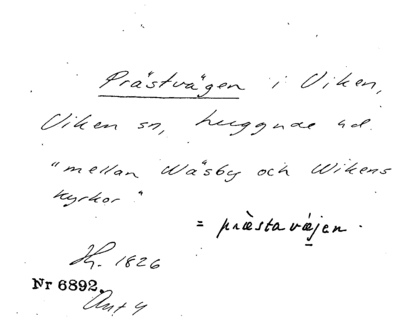 Prästvägen i Viken,
Viken sn, Luggude hd.
"mellan Wäsby och Wikens
kyrkor."
= prästavägen.
1826
Nr 6892.